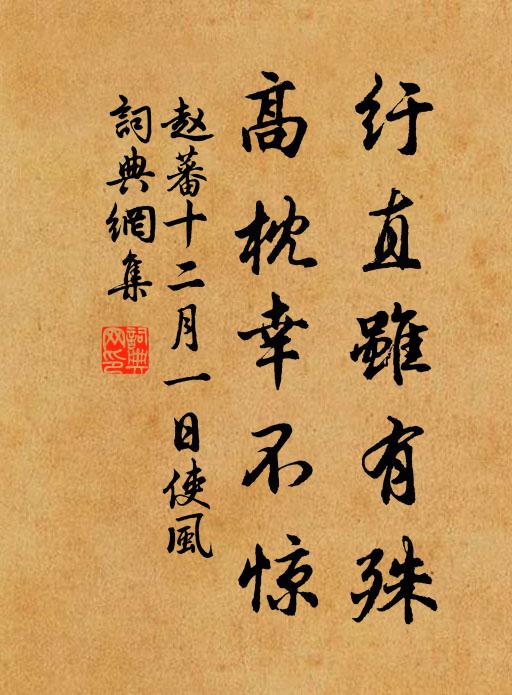 纡直雖有殊
高枕幸不惊
赵蕃十二月一日使風
詞典網集
詞典网印